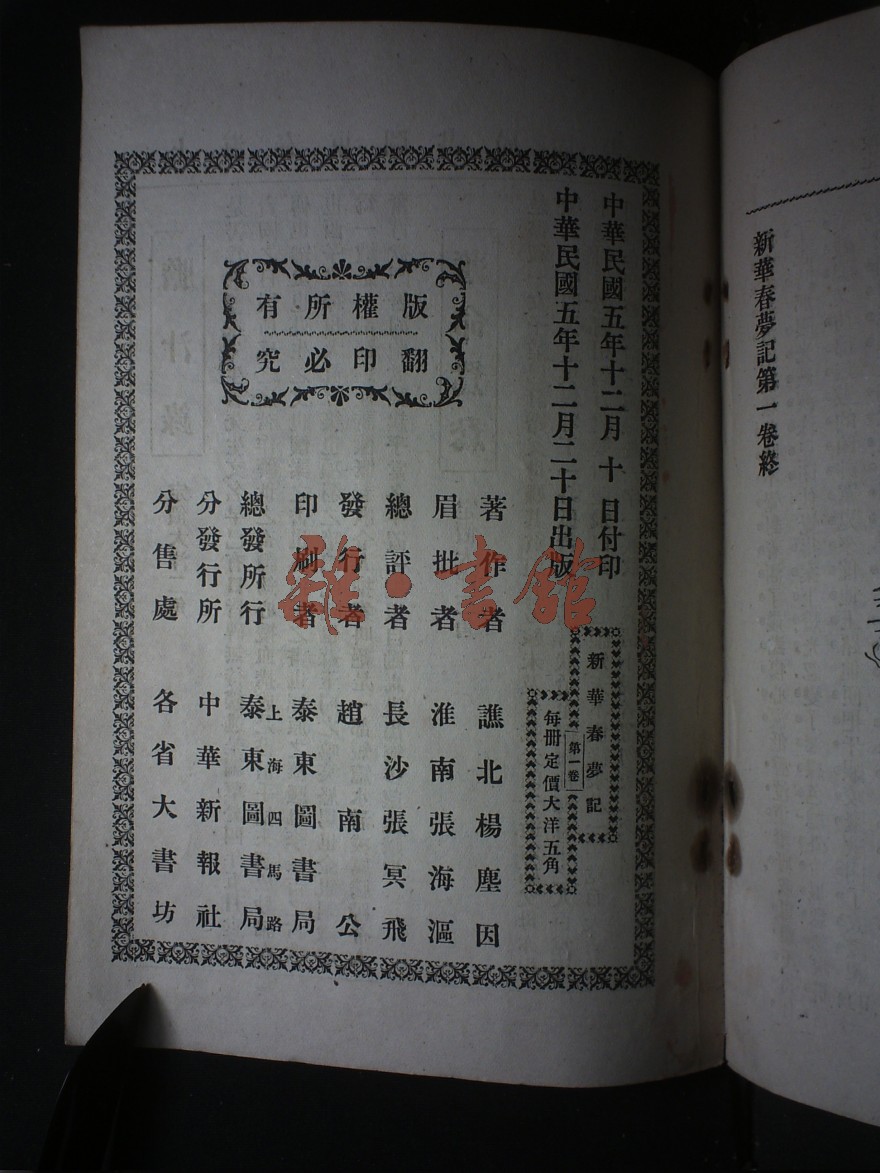 新華春夢記第一卷終
中華民國五年十二月十日付印
中華民國五年十二月二十日出版
新華春夢記
第一卷
每册定價大洋五角
版權所有
翻印必究
著作者 譙北楊塵因
眉批者 淮南張海漚
總評者 長沙張冥飛
發行者 趙南公
印刷者 泰東圖書局
總發所行 上海四馬路泰東圖書局
分發行所 中華新報社
分售處 各省大書坊
雜·書館